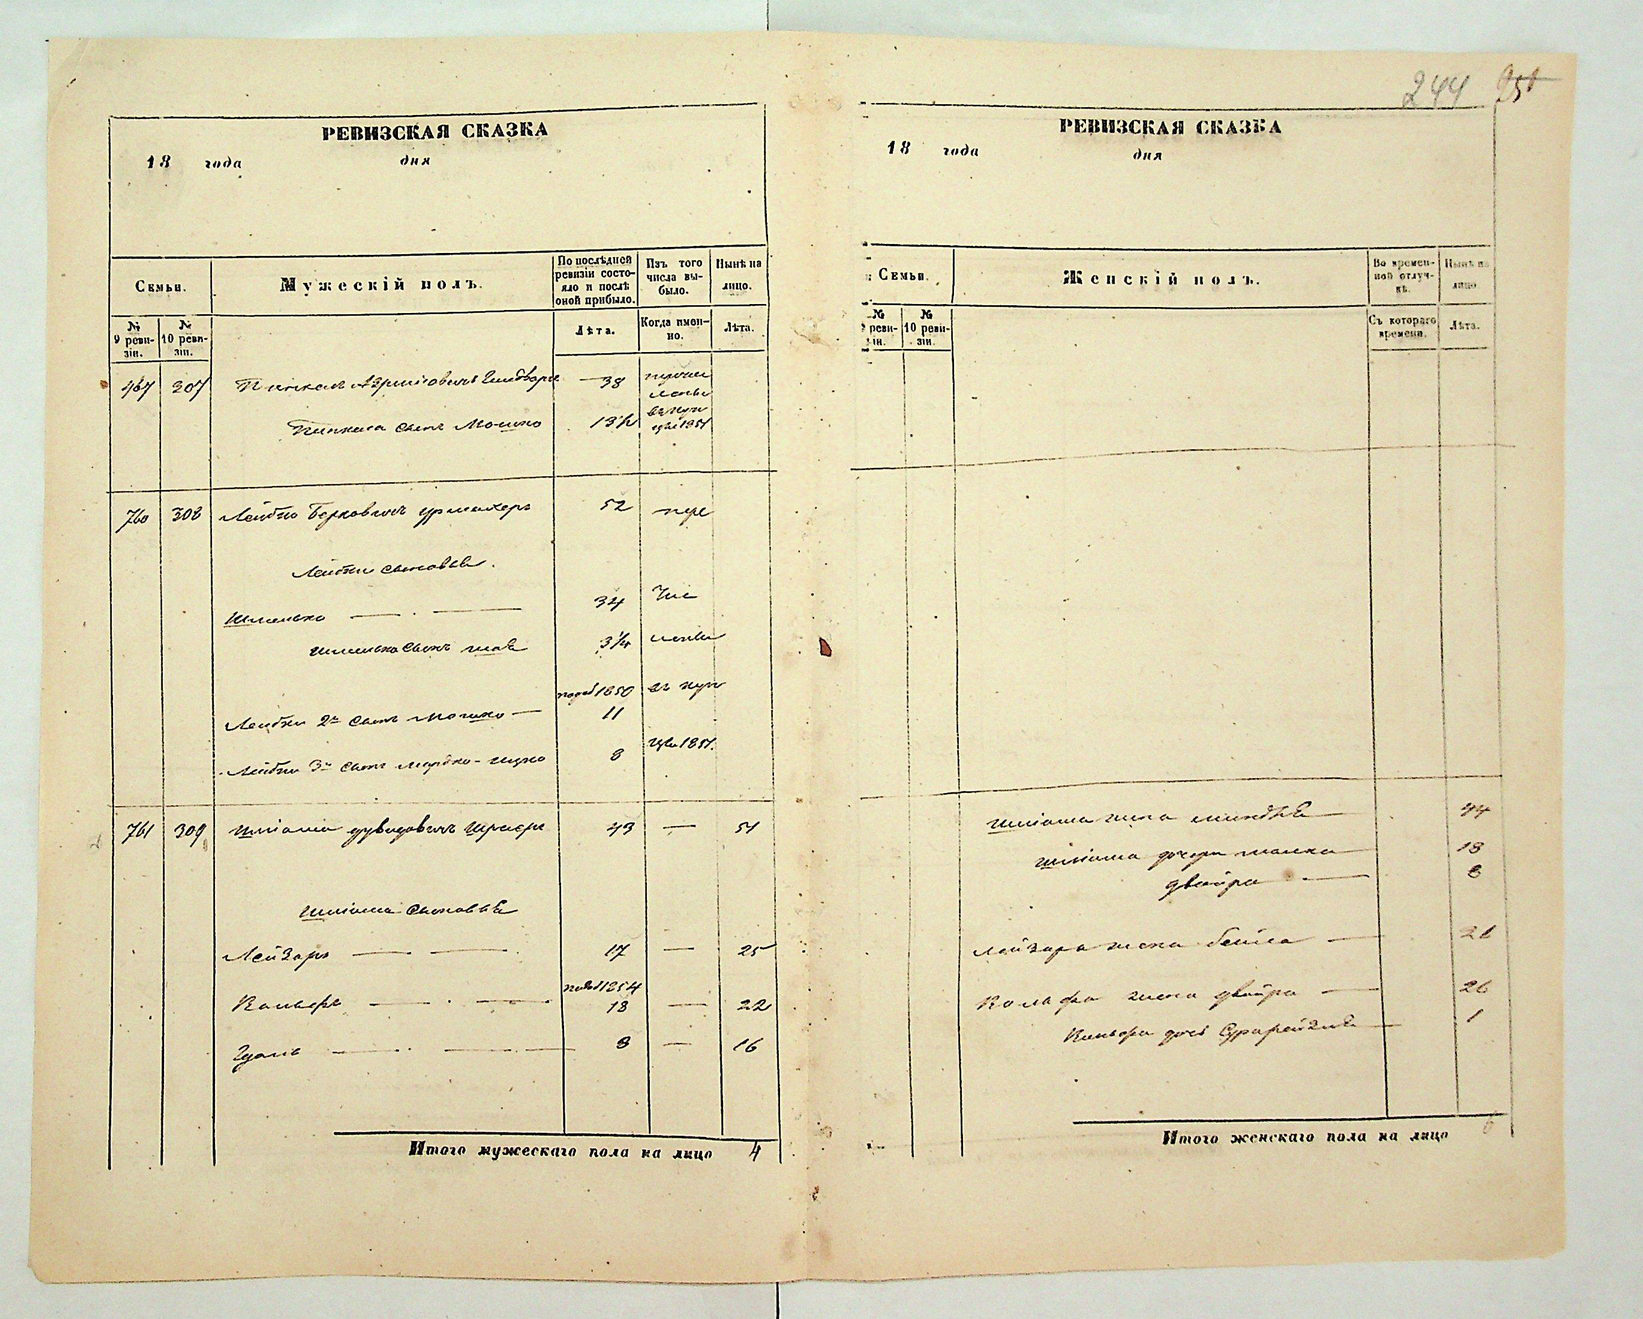 244 251
РЕВИЗСКАЯ СКАЗКА
18 года дня
Семьи. Мужескій полъ. По послѣдней ревизіи состояло и послѣ оной прибыло. Изъ того числа выбыло. Нынѣ на лицо.
№ 9 ревизіи. № 10 ревизіи. Лѣта. Когда именно. Лѣта.
467 307 Пинкасъ 38 перечис
лены
Пинкаса сынъ Мошко 13½ въ куп
цы 1851
760 308 Лейбко Берковичъ Урмахеръ 52 пере
Лейбки сыновья.
Шмелько 34 чис
Шмелька сынъ 3¼ лены
1850 въ куп
Лейбки 2й сынъ Мошко 11
цы 1851.
Лейбки 3й сынъ Мордко-Ицко 8
761 309 Шліома Дувидовичъ 43 — 51
Шліома сыновья
Лейзоръ 17 — 25
1854
18 — 22
8 — 16
Итого мужескаго пола на лицо 4
РЕВИЗСКАЯ СКАЗКА
18 года дня
Семьи. Женскій полъ. Во временной отлучкѣ. Нынѣ на лицо.
№ 9 ревизіи. № 10 ревизіи. Съ котораго времени. Лѣта.
Шліома жена 44
Шліома дочери Малка 13
Двойра 8
Лейзора жена Бейла 21
жена Двойра 26
дочь 1
Итого женскаго пола на лицо 6